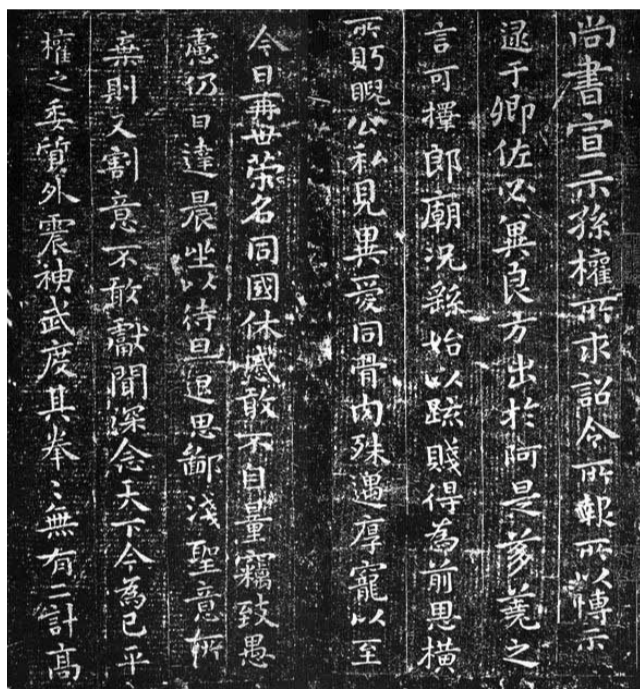 尚書宣示孫權所求詔令所報所以博示
逮于卿佐必冀良方出於阿是芻蕘之
言可擇郎廟況繇始以疏賤得為前思橫
所眄睨公私見異愛同骨肉殊遇厚寵以至
今日再世榮名同國休慼敢不自量竊致愚
慮仍日達晨坐以待旦退思鄙淺聖意所
棄則又割意不敢獻聞深念天下今為已平
權之委質外震神武度其拳〻無有二計高